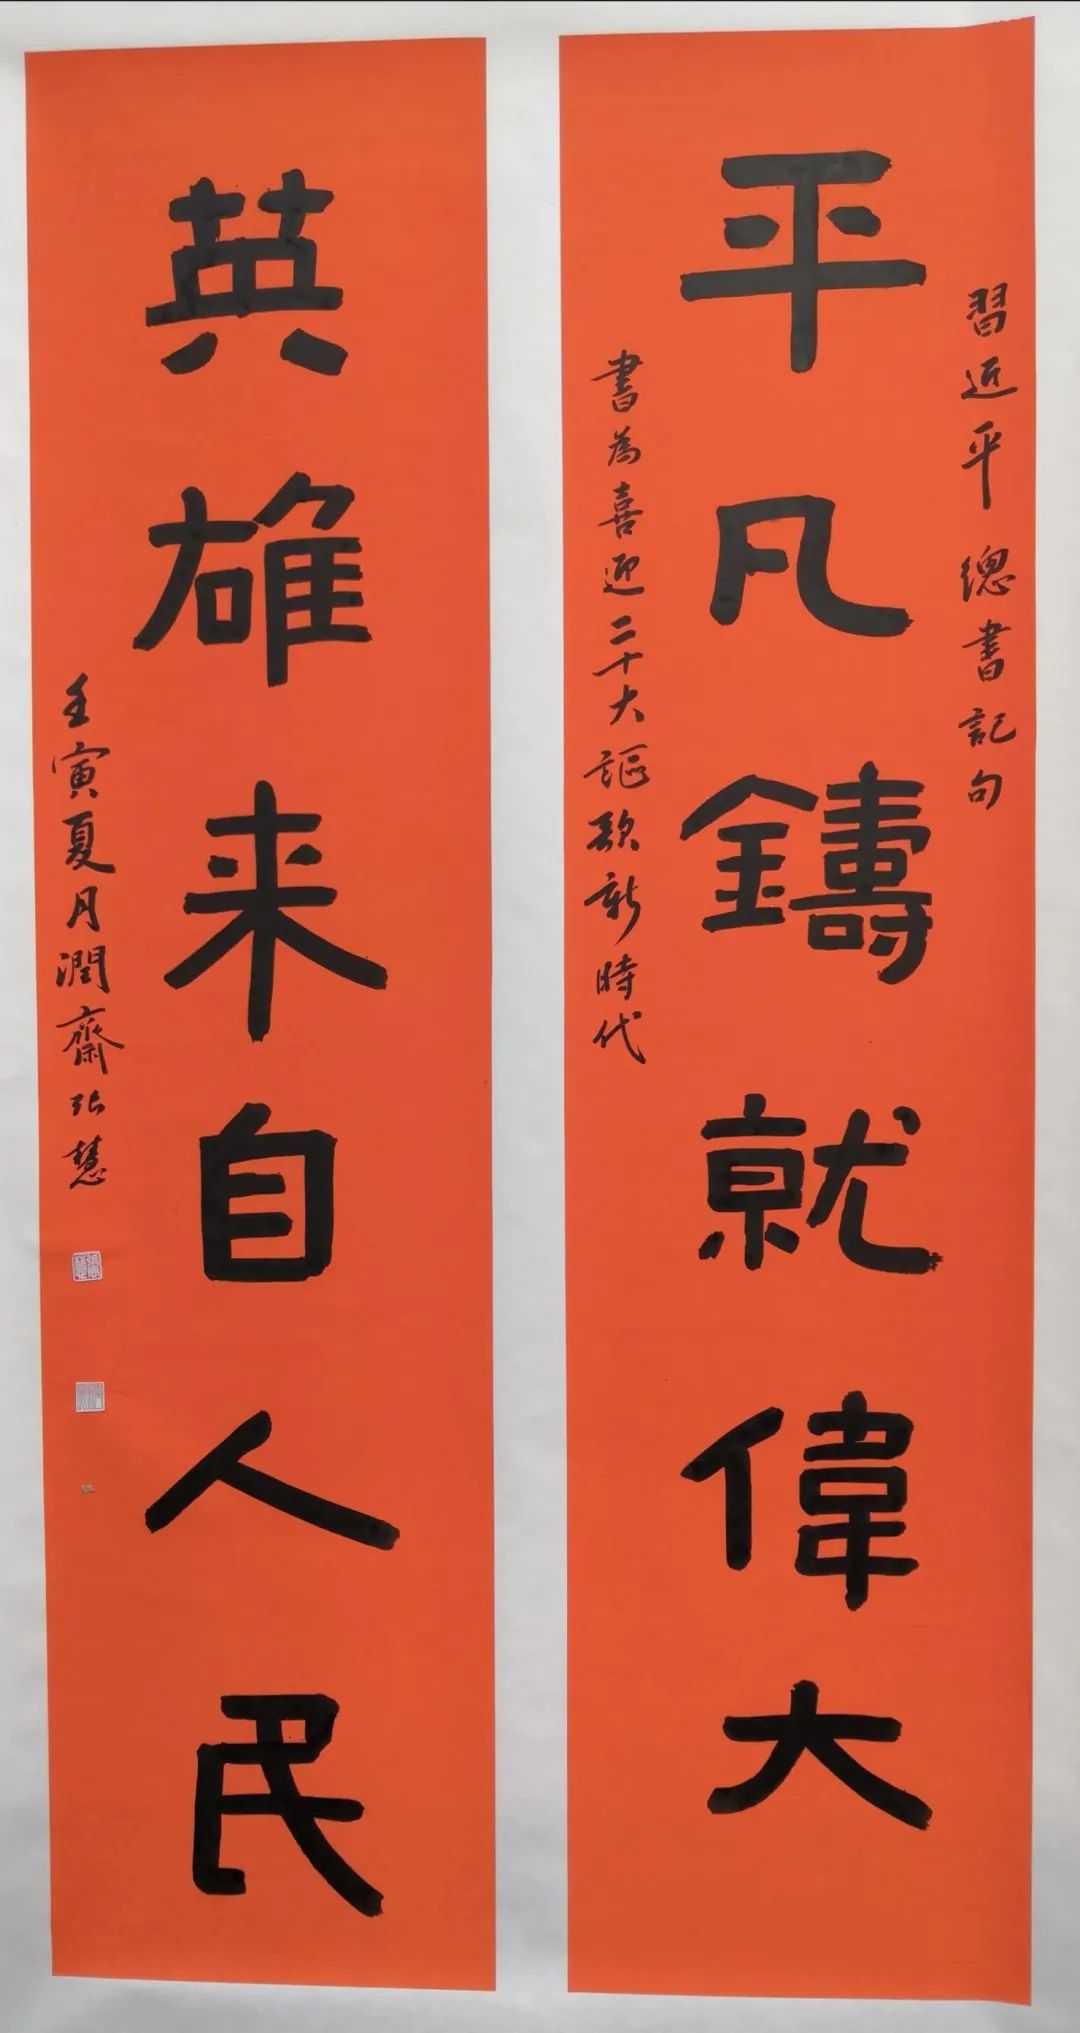 習近平總書記句
平凡鑄就偉大
書為喜迎二十大謳歌新時代
英雄来自人民
壬寅夏月潤齋張慧